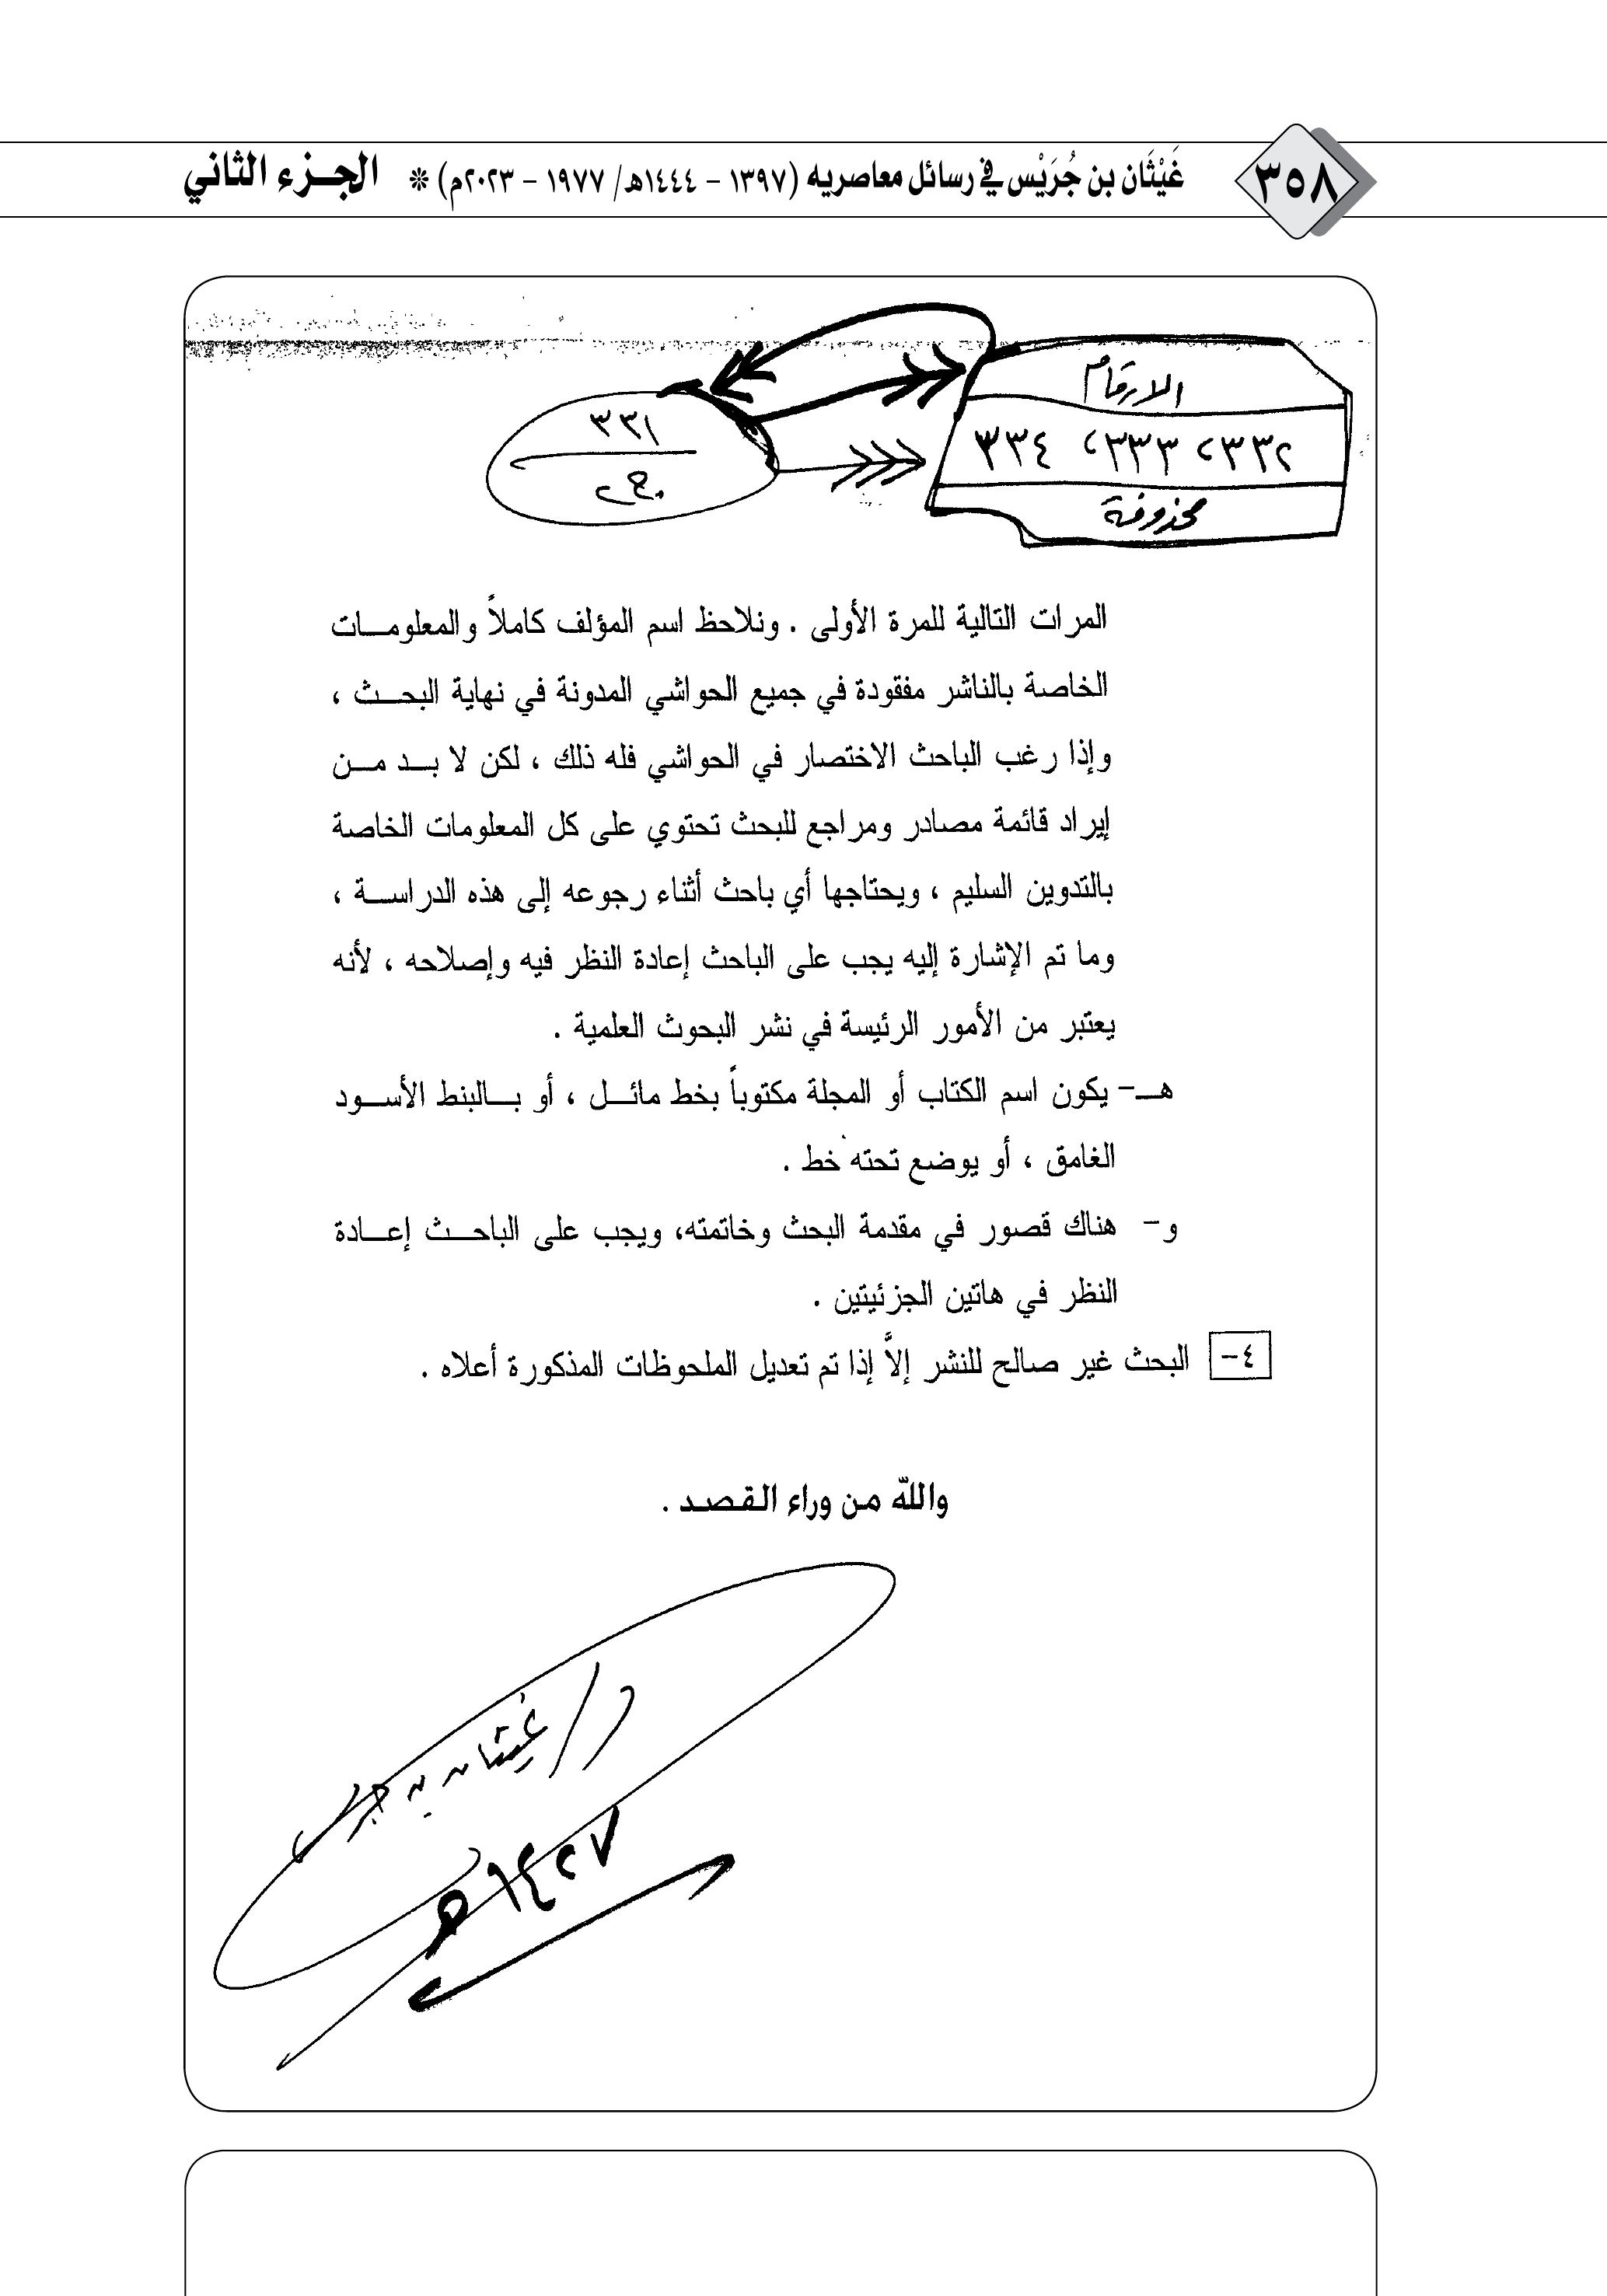 ٣٥٨ غَيْثَان بن جُرَيْس في رسائل معاصريه (١٣٩٧ – ١٤٤٤هـ/ ١٩٧٧ – ٢٠٢٣م) ❊ الجـزء الثاني
الارقام
٣٣٢، ٣٣٣، ٣٣٤
محذوفة
٣٣١
المرات التالية للمرة الأولى . ونلاحظ اسم المؤلف كاملاً والمعلومـات
الخاصة بالناشر مفقودة في جميع الحواشي المدونة في نهاية البحـث ،
وإذا رغب الباحث الاختصار في الحواشي فله ذلك ، لكن لا بـد مـن
إيراد قائمة مصادر ومراجع للبحث تحتوي على كل المعلومات الخاصة
بالتدوين السليم ، ويحتاجها أي باحث أثناء رجوعه إلى هذه الدراسـة ،
وما تم الإشارة إليه يجب على الباحث إعادة النظر فيه وإصلاحه ، لأنه
يعتبر من الأمور الرئيسة في نشر البحوث العلمية .
هـ- يكون اسم الكتاب أو المجلة مكتوباً بخط مائـل ، أو بـالبنط الأسـود
الغامق ، أو يوضع تحته خط .
و- هناك قصور في مقدمة البحث وخاتمته، ويجب على الباحـث إعـادة
النظر في هاتين الجزئيتين .
٤- البحث غير صالح للنشر إلاَّ إذا تم تعديل الملحوظات المذكورة أعلاه .
والله من وراء القصد .
د/ غيثان بن جريس
١٤٢٧هـ